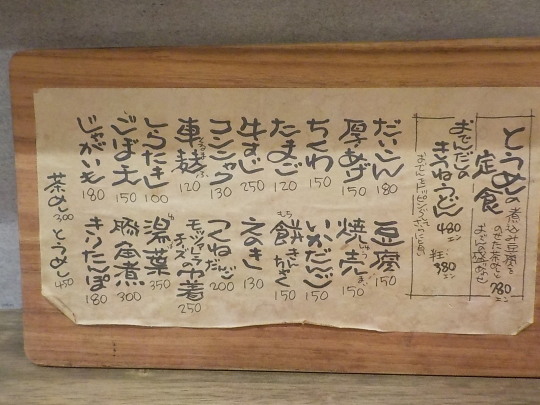 とうめしの定食
煮込み豆腐を
のせた茶めしと
おでんの盛合せ
780エン
おでんだしの
きつねうどん 480エン
半 380エン
だいこん 180
厚あげ 150
ちくわ 150
たまご 120
牛すじ 250
コンニャク 130
車麸 120
くるまぶ
しらたき 100
ごぼ天 150
じゃがいも 180
豆腐 150
焼売 150
しゅうまい
いかだんご 150
餅きんちゃく 150
もち
えのき 130
つくねだんご 200
モッツァレラチーズの巾着 250
湯葉 350
ゆば
豚角煮 300
きりたんぽ 180
茶めし 300
とうめし 450